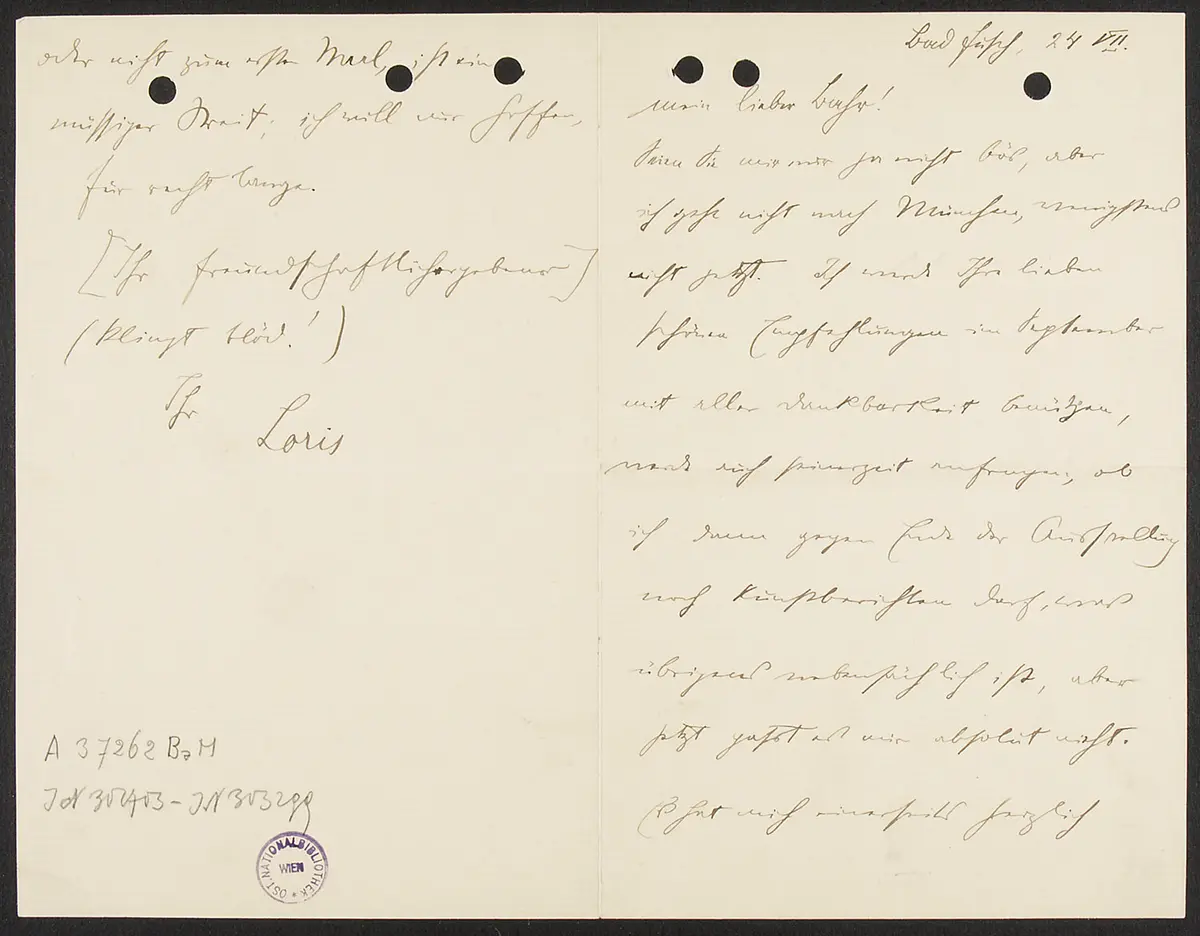 Bad Fusch, 24 VII.
mein lieber Bahr!
Seien Sie mir nur ja nicht bös, aber
ich gehe nicht nach München, wenigstens
nicht jetzt. Ich werde Ihre lieben
schönen Empfehlungen im September
mit aller Dankbarkeit benützen,
werde auch seinerzeit anfragen, ob
ich dann gegen Ende der Ausstellung
noch kunstberichten darf, was
übrigens nebensächlich ist, aber
jetzt passt es mir absolut nicht.
Es hat mich einerseits herzlich
oder nicht zum ersten Mal, ist ein
müssiger Streit; ich will nur hoffen,
für recht lange.
[Ihr freundschaftlichergebener]
(klingt blöd!)
Ihr
Loris
A 37262 BaM
IN 302403 - IN 303299
ÖST. NATIONALBIBLIOTHEK
WIEN